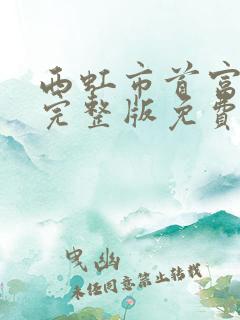 西虹市首富
完整版免费
曳幽
未经同意禁止转载